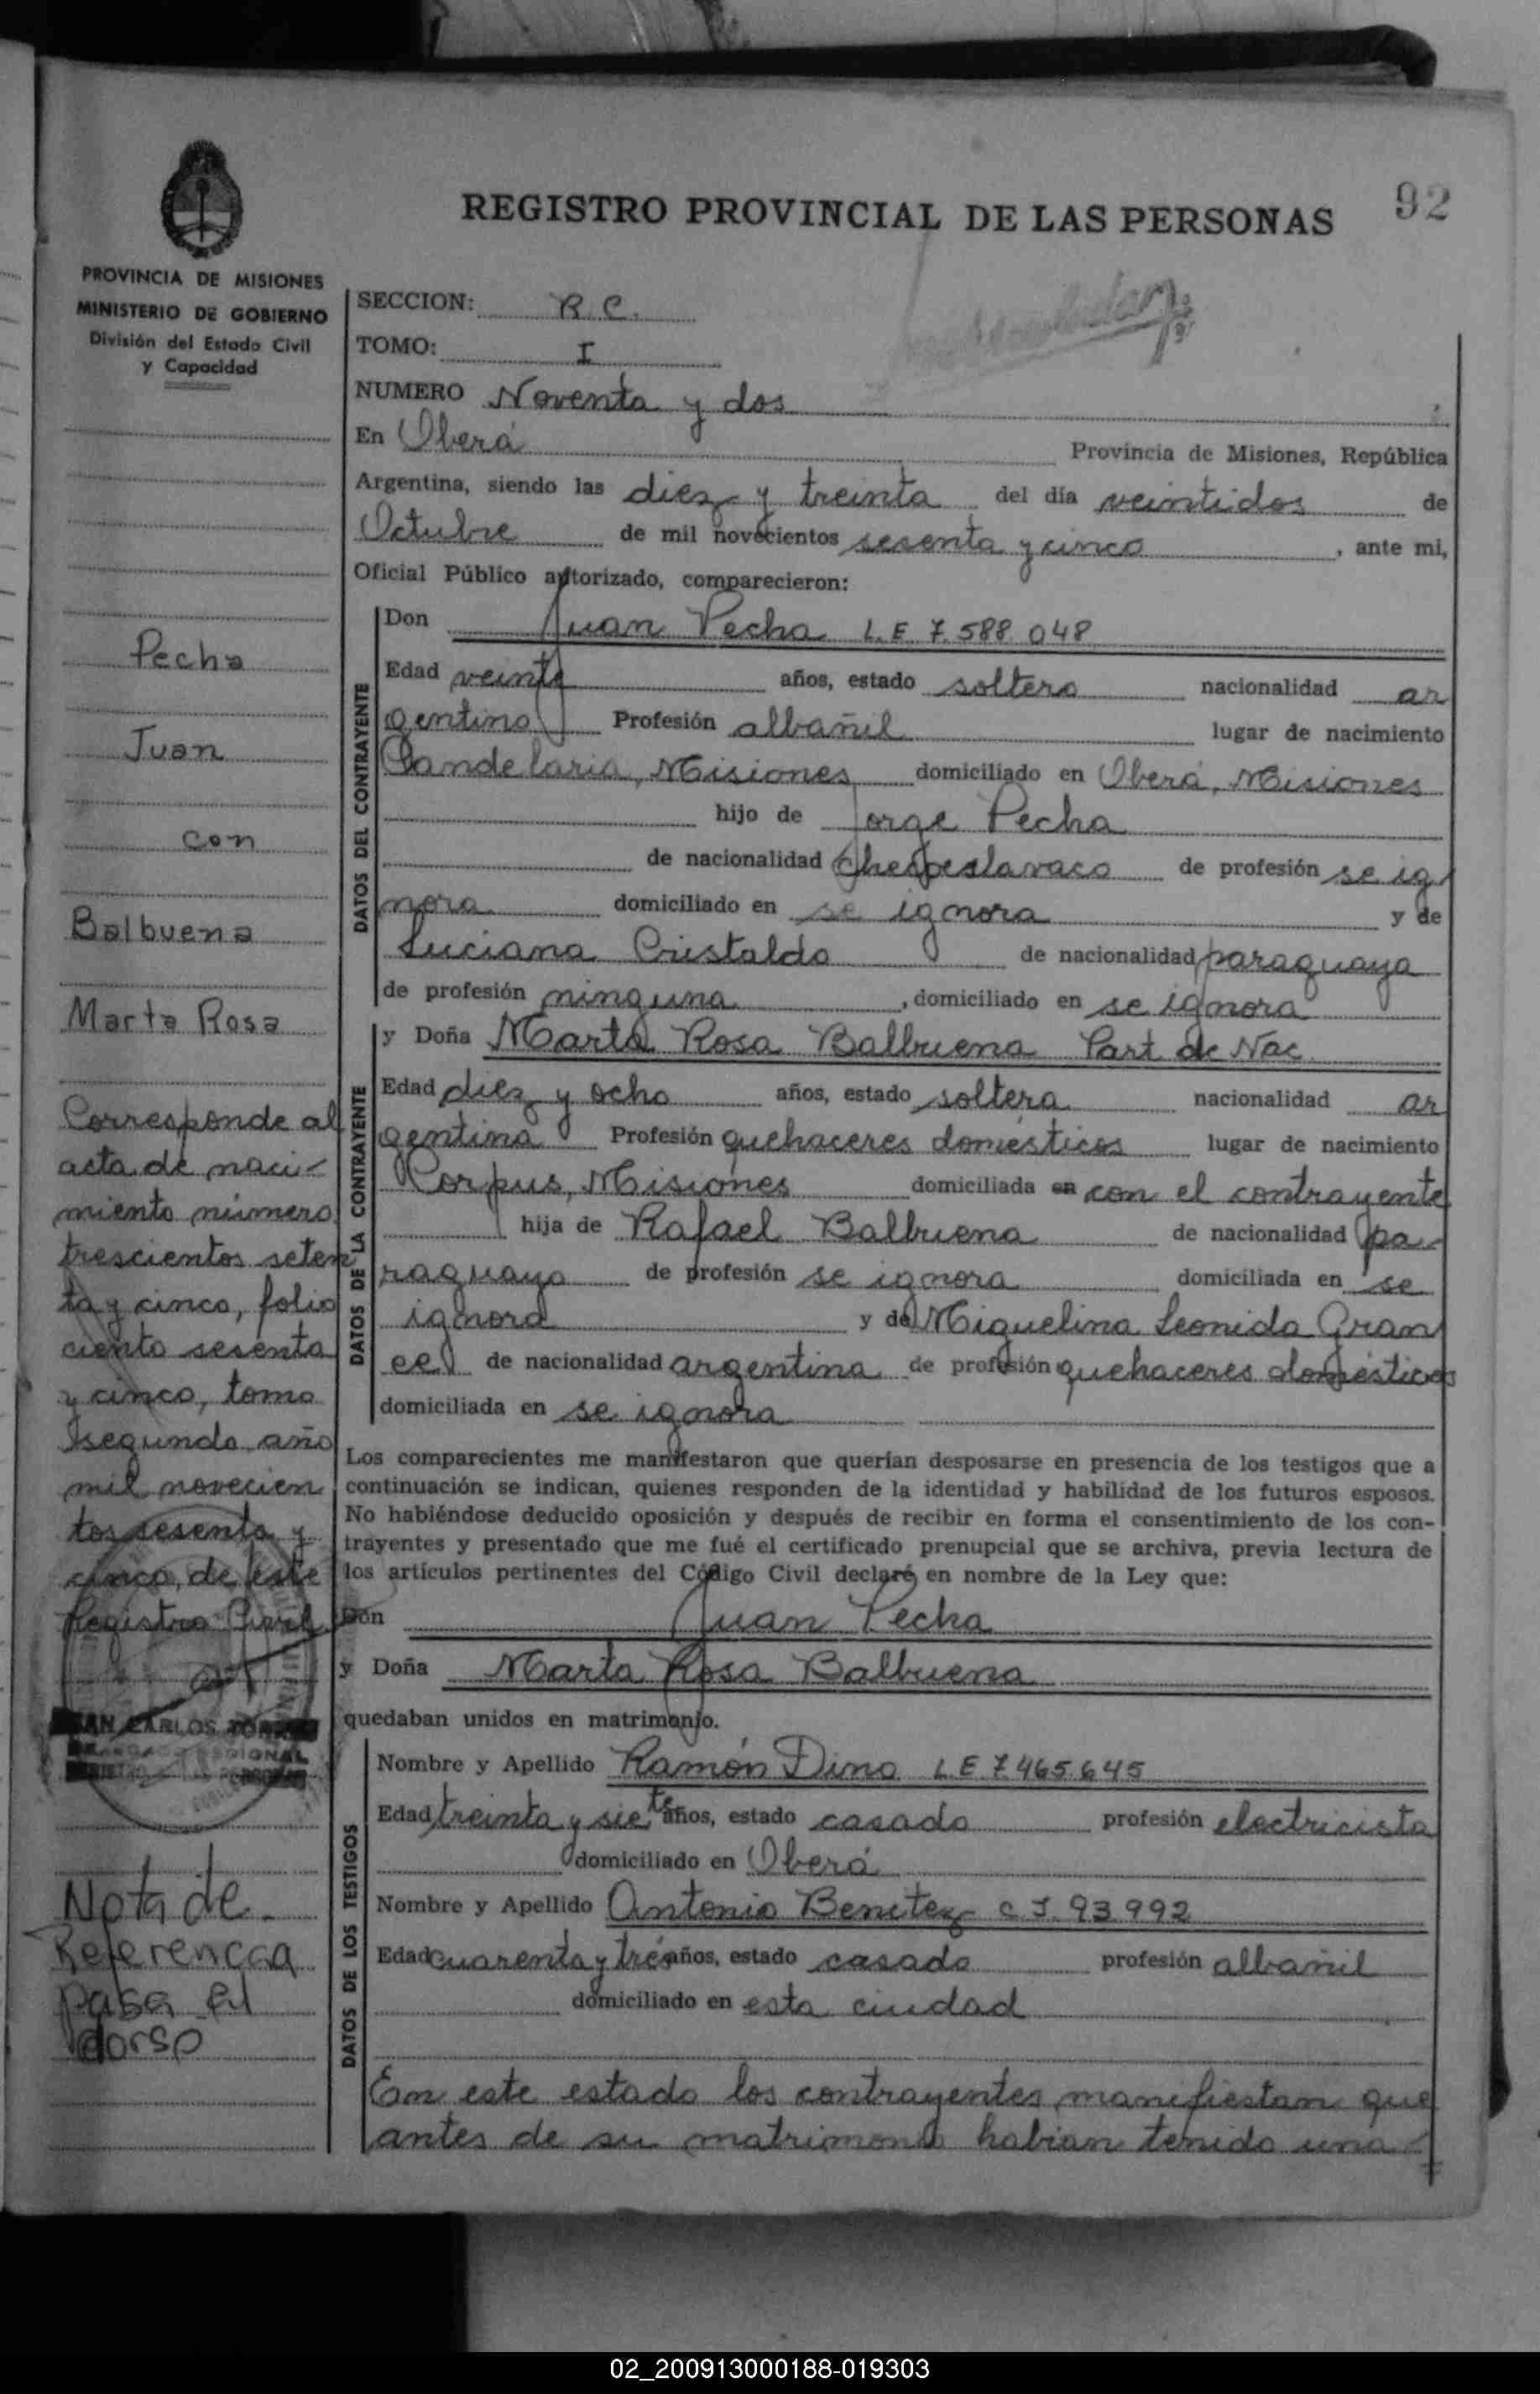 92
REGISTRO PROVINCIAL DE LAS PERSONAS
PROVINCIA DE MISIONES
MINISTERIO DE GOBIERNO
División del Estado Civil
y Capacidad
SECCION: R. C.
TOMO: I
NUMERO Noventa y dos
En Oberá Provincia de Misiones, República
Argentina, siendo las diez y treinta del día veintidos de
Octubre de mil novecientos sesenta y cinco, ante mi,
Oficial Público autorizado, comparecieron:
DATOS DEL CONTRAYENTE
Don Juan Pecha L.E 7.588.048
Edad veinte años, estado soltero nacionalidad ar
gentino Profesión albañil lugar de nacimiento
Candelaria, Misiones domiciliado en Oberá, Misiones
hijo de Jorge Pecha
de nacionalidad de profesión se ig
nora domiciliado en se ignora y de
Luciana Cristaldo de nacionalidad paraguaya
de profesión ninguna, domiciliado en se ignora
DATOS DE LA CONTRAYENTE
y Doña Marta Rosa Balbuena Part de Nac.
Edad diez y ocho años, estado soltera nacionalidad ar
gentina Profesión quehaceres domésticos lugar de nacimiento
Corpus, Misiones domiciliada en con el contrayente
hija de Rafael Balbuena de nacionalidad pa-
raguaya de profesión se ignora domiciliada en se
ignora y de Miguelina Leonida Gran
ce de nacionalidad argentina de profesión quehaceres domésticos
domiciliada en se ignora
Los comparecientes me manifestaron que querían desposarse en presencia de los testigos que a
continuación se indican, quienes responden de la identidad y habilidad de los futuros esposos.
No habiéndose deducido oposición y después de recibir en forma el consentimiento de los con-
trayentes y presentado que me fué el certificado prenupcial que se archiva, previa lectura de
los artículos pertinentes del Código Civil declaré en nombre de la Ley que:
Don Juan Pecha
y Doña Marta Rosa Balbuena
quedaban unidos en matrimonio.
DATOS DE LOS TESTIGOS
Nombre y Apellido Ramón Dino L.E 7.465.645
Edad treinta y siete años, estado casado profesión electricista
domiciliado en Oberá
Nombre y Apellido Antonio Benitez C.I. 93.992
Edad cuarenta y tres años, estado casado profesión albañil
domiciliado en esta ciudad
En este estado los contrayentes manifiestan que
antes de su matrimonio habian tenido una
Pecha
Juan
con
Balbuena
Marta Rosa
Corresponde al
acta de naci-
miento número
trescientos seten
ta y cinco, folio
ciento sesenta
y cinco, tomo
segundo año
mil novecien
tos sesenta y
cinco, de este
Registro Civil
Nota de
Referencia
pasa al
dorso
02_200913000188-019303